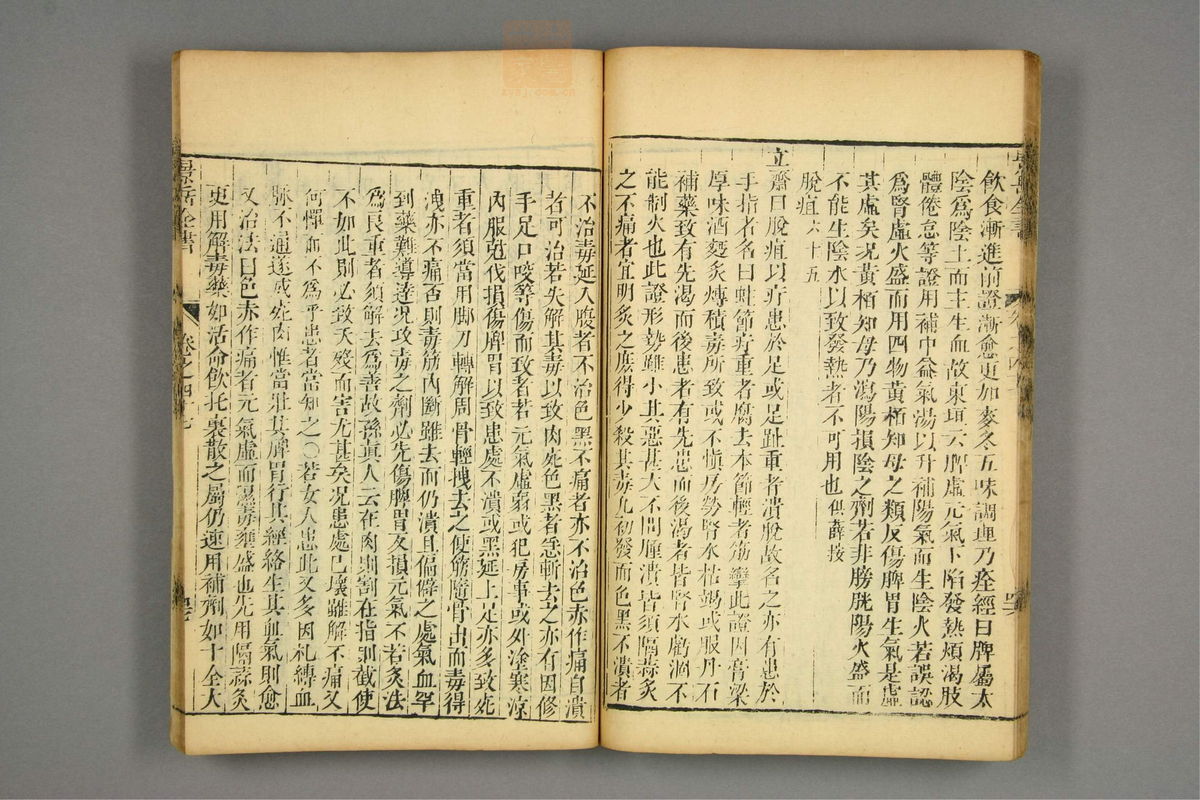 飲食漸進前證漸愈更加麥冬五味調理乃痊經曰脾屬太
陰爲陰土而主生血故東垣云脾虛元氣下陷發熱煩渴肢
體倦怠等證用補中益氣湯以升補陽氣而生陰火若誤認
爲腎虛火盛而用四物黃栢知母之類反傷脾胃生氣是虛
其虛矣况黃栢知母乃瀉陽損陰之劑若非膀胱陽火盛而
不能生陰水以致發熱者不可用也俱薛按
脫疽六十五
立齋曰脫疽以疔患於足或足趾重者潰脫故名之亦有患於
手指者名曰蛀節疔重者腐去本節輕者筋攣此證因膏粱
厚味酒麪炙煿積毒所致或不愼房勞腎水枯竭或服丹石
補藥致有先渴而後患者有先患而後渴者皆腎水虧涸不
能制火也此證形勢雖小其惡甚大不問腫潰皆須隔蒜炙
之不痛者宜明炙之庶得少殺其毒凡初發而色黑不潰者
不治毒延入腹者不治色黑不痛者亦不治色赤作痛自潰
者可治若失解其毒以致肉死色黑者急斬去之亦有因修
手足口咬等傷而致者若元氣虛弱或犯房事或外塗寒凉
內服尅伐損傷脾胃以致患處不潰或黑延上足亦多致死
重者須當用脚刀轉解周骨輕拽去之使筋隨骨出而毒得
洩亦不痛否則毒筋內斷雖去而仍潰且偏僻之處氣血罕
到藥難導達况攻毒之劑必先傷脾胃反損元氣不若炙法
爲良重者須解去爲善故孫眞人云在肉則割在指則截使
不如此則必致夭殘而害尤甚矣况患處已壞雖解不痛又
何憚而不爲乎患者當知之○若女人患此又多因札縛血
脉不通遂成死肉惟當壯其脾胃行其經絡生其血氣則愈
又治法曰色赤作痛者元氣虛而濕毒壅盛也先用隔蒜灸
更用解毒藥如活命飲托裏散之屬仍速用補劑如十全大
景岳全書
卷之四十七